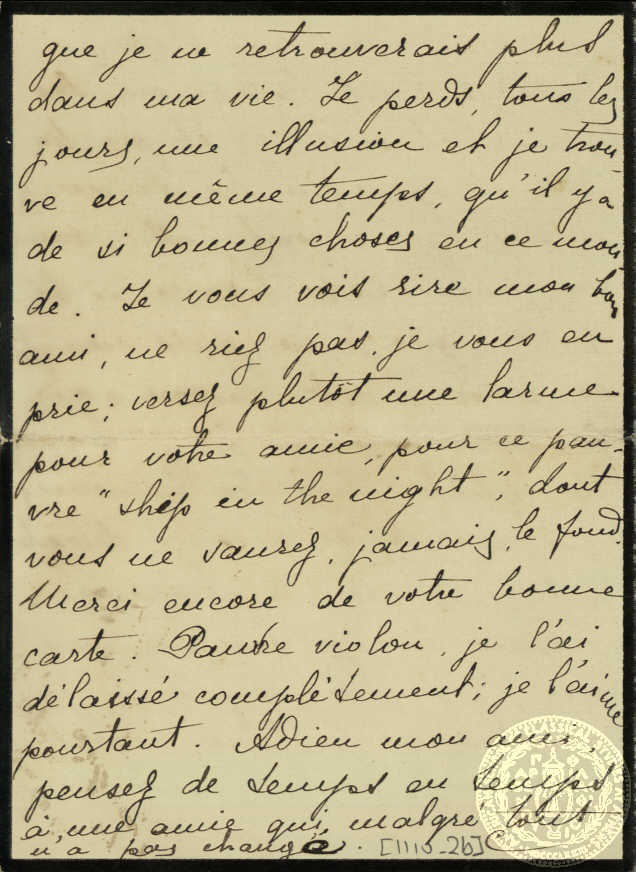 que je ne retrouverais plus
dans ma vie. Je perds, tous les
jours, une illusion et je trou-
ve en même temps, qu'il y a
de si bonnes choses en ce mon
de. Je vous vois rire mon bon
ami, ne riez pas, je vous en
prie; versez plutôt une larme
pour votre amie, pour ce pau-
vre "ship in the night", dont
vous ne saurez, jamais, le fond.
Merci encore de votre bonne
carte. Pauvre violon, je l'ai
délaissé complètement; je l'aime
pourtant. Adieu mon ami,
pensez de temps en temps
à une amie qui, malgré tout
n'a pas changé. [1110_2b]